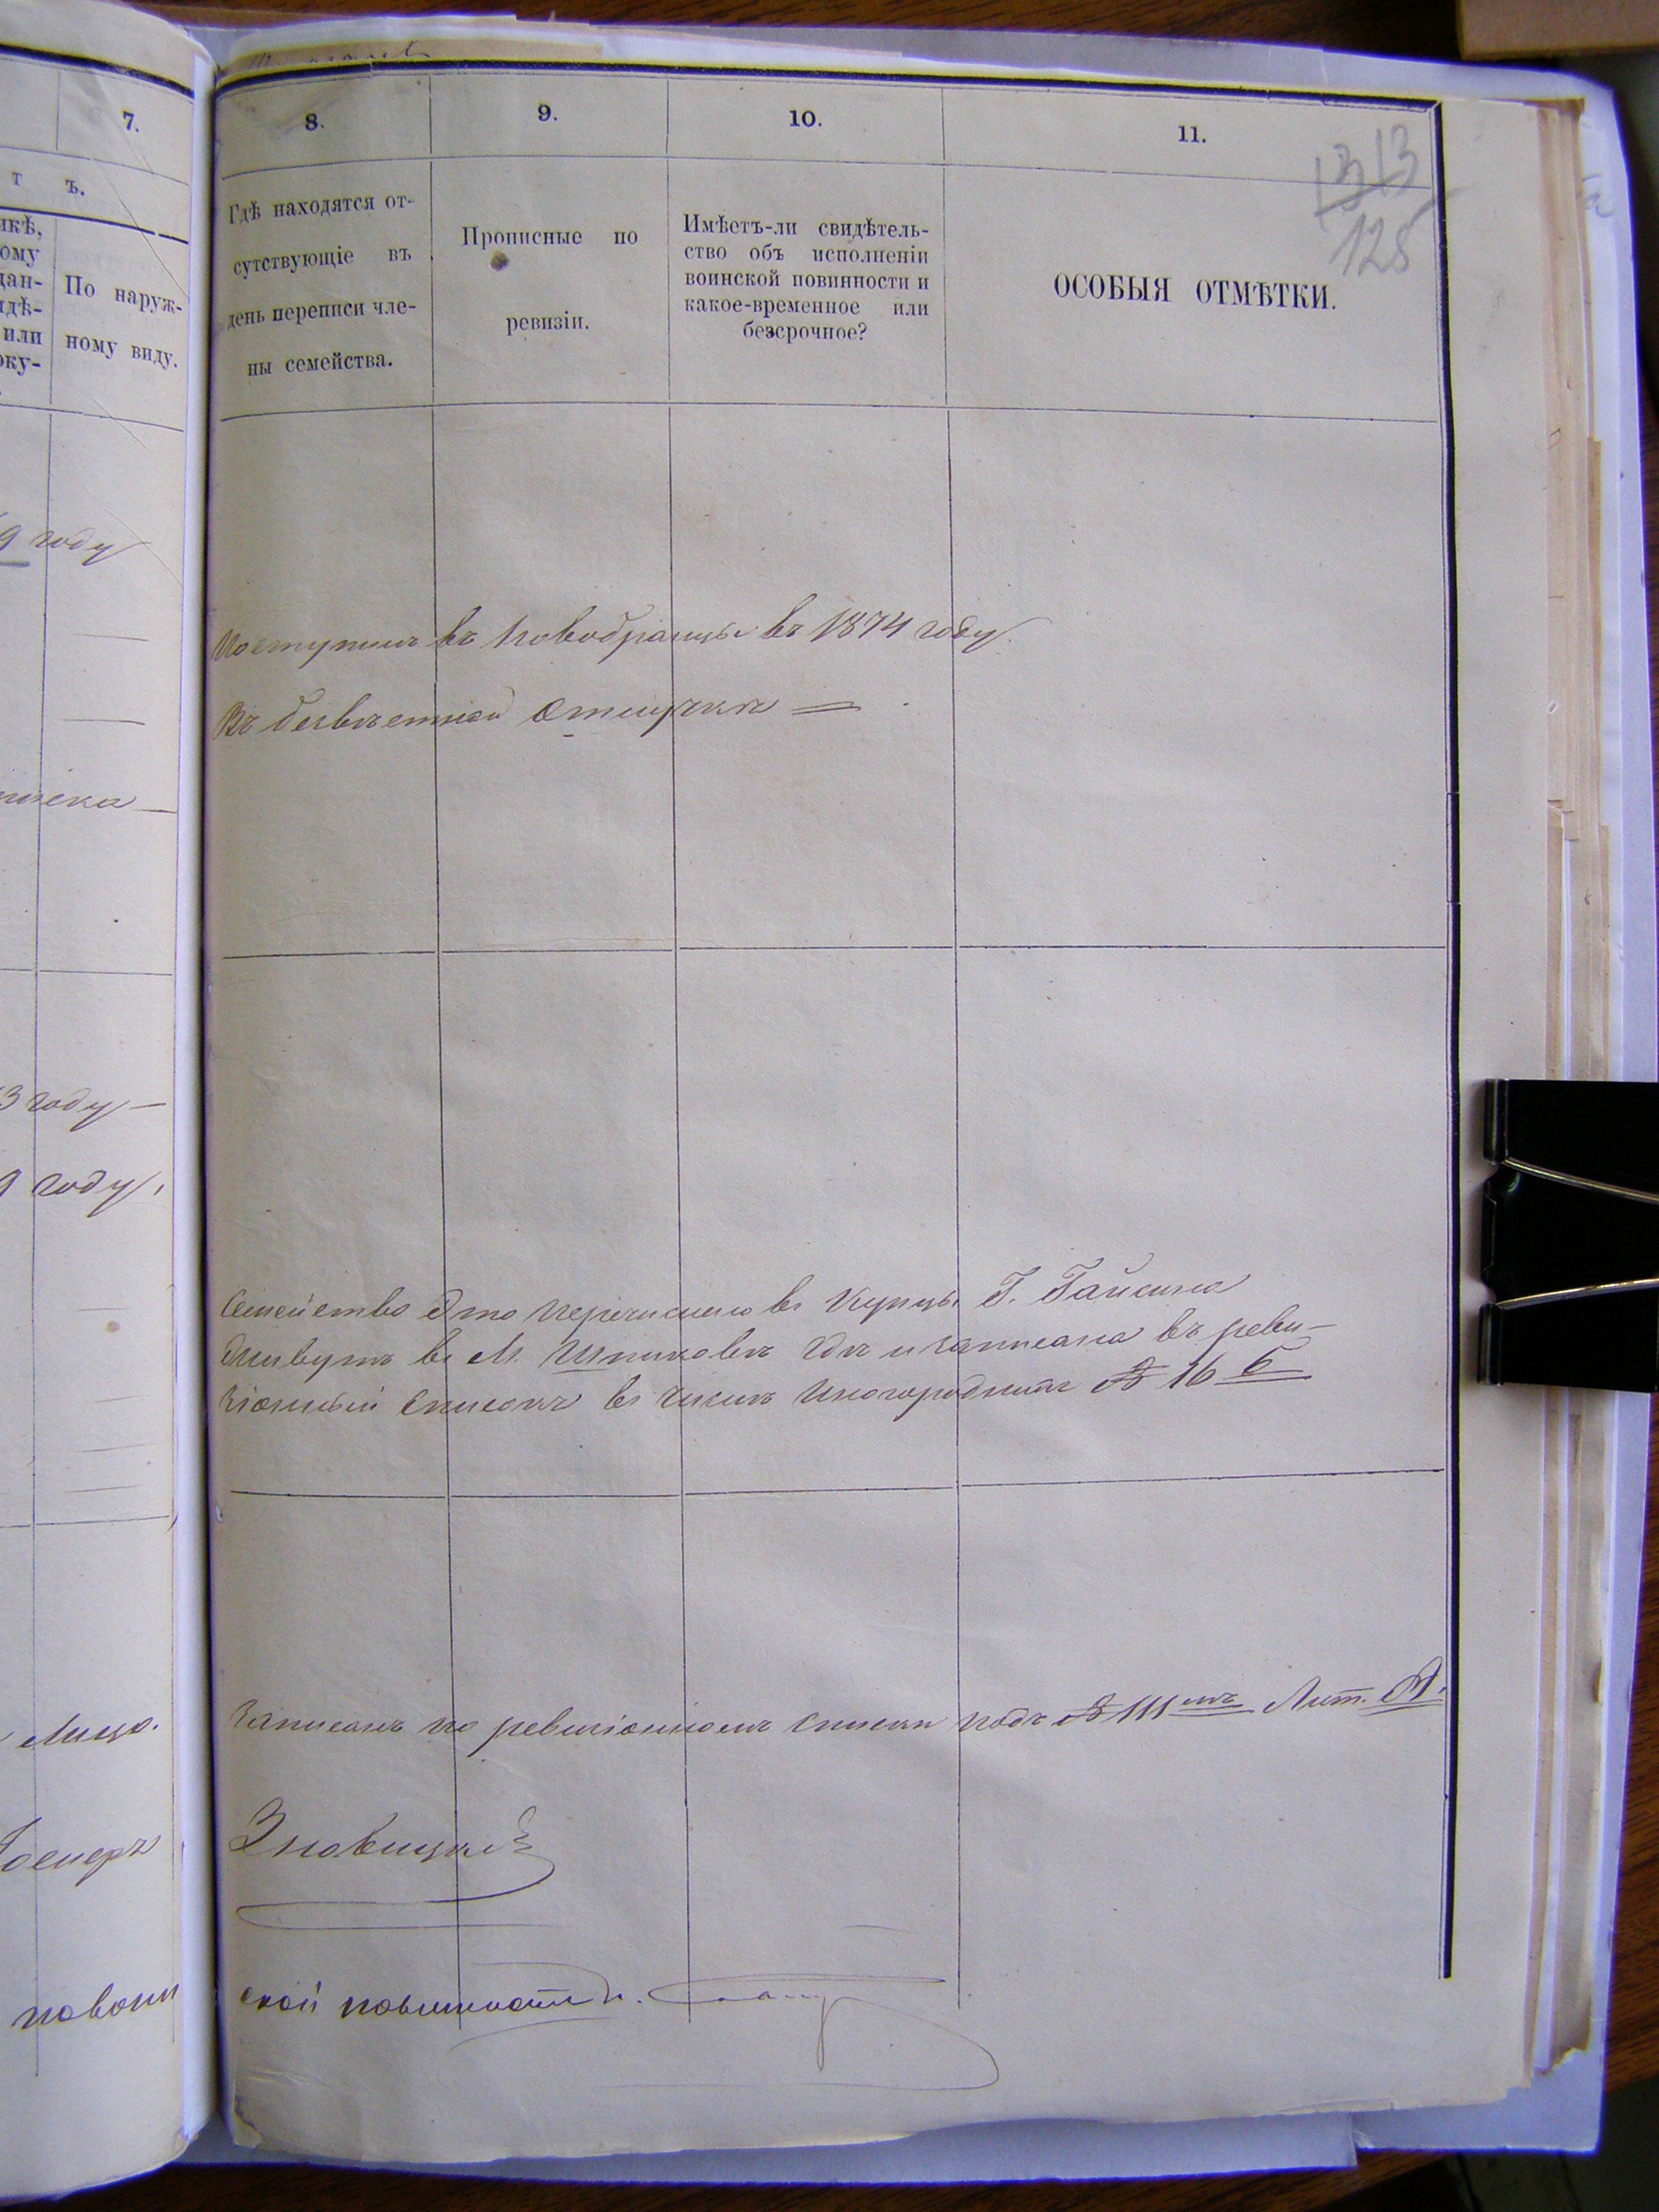 7.
8.
9.
10.
11.
1313
128
т ъ.
По наруж-
ному виду.
Гдѣ находятся от-
сутствующіе въ
день переписи чле-
ны семейства.
Прописные по
ревизіи.
Имѣетъ-ли свидѣтель-
ство объ исполненіи
воинской повинности и
какое-временное или
безсрочное?
ОСОБЫЯ ОТМѢТКИ.
9 году
Поступилъ въ новобранцы въ 1874 году.
Въ безвѣстной отлучкѣ
3 году
9 году,
Семейство это перечислено въ купцы Г. Гайсина
живутъ въ М. Шпиковѣ гдѣ и записана въ реви-
зіонный списокъ въ числѣ иногороднихъ № 16 б
Лицо.
Записанъ по ревизіонномъ списки подъ № 111 мъ Лит. А.
повин
ской повинности.